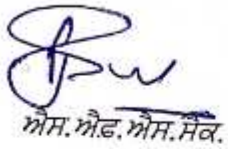 ਐਸ.ਐਫ.ਐਸ.ਸੈਕ.